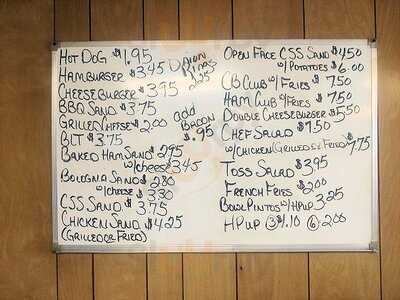 HOT DOG $1.95
HAMBURGER $3.45
ONION RINGS 2.25
CHEESEBURGER $3.95
BBQ SAND $3.75
GRILLED CHEESE $2.00
add BACON $.95
BLT $3.75
BAKED HAM SAND 2.95
w/cheese 3.45
BOLOGNA SAND $2.80
w/cheese $3.30
CSS SAND $3.75
CHICKEN SAND $4.25
(GRILLED OR FRIED)
OPEN FACE CSS SAND $4.50
w/POTATOES $6.00
CB CLUB w/FRIES $7.50
HAM CLUB w/FRIES $7.50
DOUBLE CHEESEBURGER $5.50
CHEF SALAD
w/CHICKEN (GRILLED OR FRIED) $7.75
TOSS SALAD $3.95
FRENCH FRIES $2.00
BOWL PINTOS w/HPUP 3.25
HPUP ③ $1.10 ⑥ 2.00